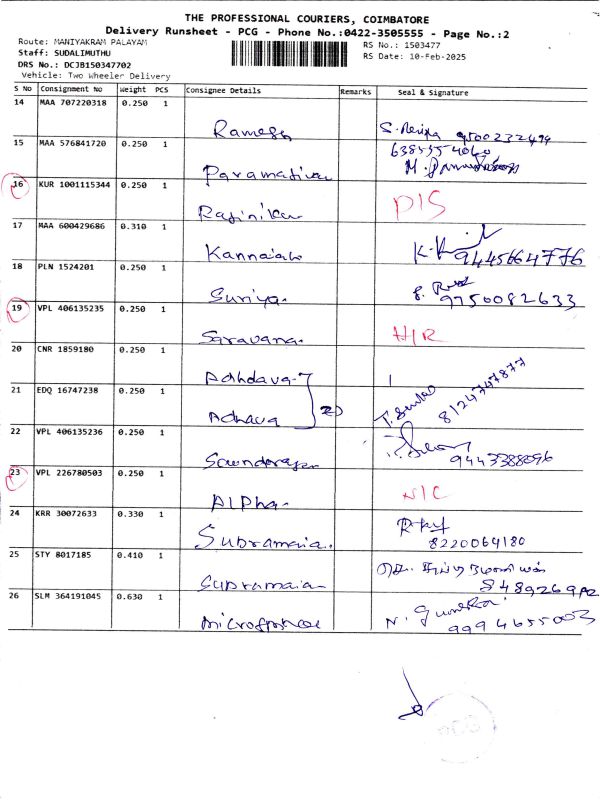 THE PROFESSIONAL COURIERS, COIMBATORE
Delivery Runsheet - PCG - Phone No.:0422-3505555 - Page No.:2
Route: MANIYAKRAM PALAYAM
RS No.: 1503477
Staff: SUDALIMUTHU
RS Date: 10-Feb-2025
DRS No.: DCJB150347702
Vehicle: Two Wheeler Delivery
S No Consignment No Weight PCS Consignee Details Remarks Seal & Signature
14 MAA 707220318 0.250 1
Ramesh 9500232499
15 MAA 576841720 0.250 1
6385554040
16 KUR 1001115344 0.250 1
Rajinikan D/S
17 MAA 600429686 0.310 1
Kannaiah 9445664776
18 PLN 1524201 0.250 1
Suriya 9750082633
19 VPL 406135235 0.250 1
Saravana H/R
20 CNR 1859180 0.250 1
21 EDQ 16747238 0.250 1
2
8124747877
22 VPL 406135236 0.250 1
9443388096
23 VPL 226780503 0.250 1
Alpha N/C
24 KRR 30072633 0.330 1
Subramaia 8220064180
25 STY 8017185 0.410 1
Subramaia
26 SLM 364191045 0.630 1
9994655003